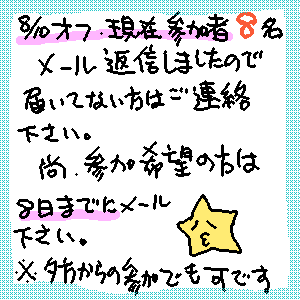 8/10オフ.現在参加者8名
メール返信しましたので
届いてない方はご連絡
下さい。
尚.参加希望の方は
8日までにメール
下さい。
※夕方からの参加でも可です